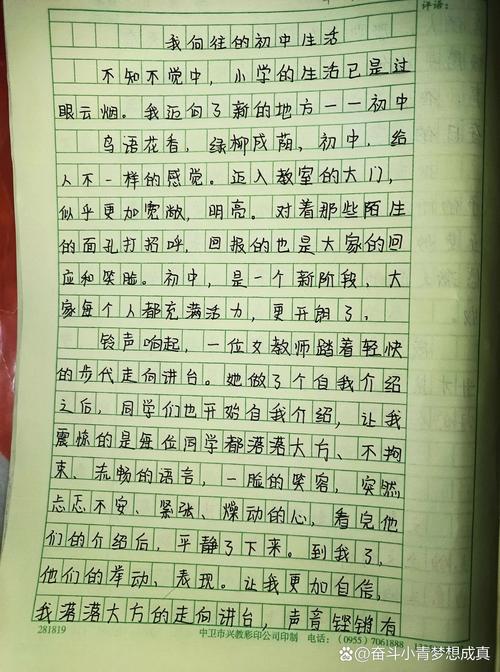 评语:
我向往的初中生活
不知不觉中，小学的生活已是过
眼云烟。我迈向了新的地方一一初中
鸟语花香，绿柳成荫、初中，给
人不一样的感觉。迈入教室的大门，
似乎更加宽敞，明亮。对着那些陌生
的面孔打招呼，回报的也是大家的回
应和笑脸。初中，是一个新阶段，大
家每个人都充满活力，更开朗了。
铃声响起，一位女教师踏着轻快
的步代走向讲台。她做了个自我介绍
之后，同学们也开始自我介绍，让我
震惊的是每位同学都落落大方、不拘
束、流畅的语言，一脸的笑容，突然
忐忑不安、紧张、燥动的心，看完他
们的介绍后，平静了下来。到我了，
他们的举动、表现。让我更加自信，
我落落大方的走向讲台，声音铿锵有
281819
中卫市兴教彩印公司印制 电话：（0955）7061888
@奋斗小青梦想成真